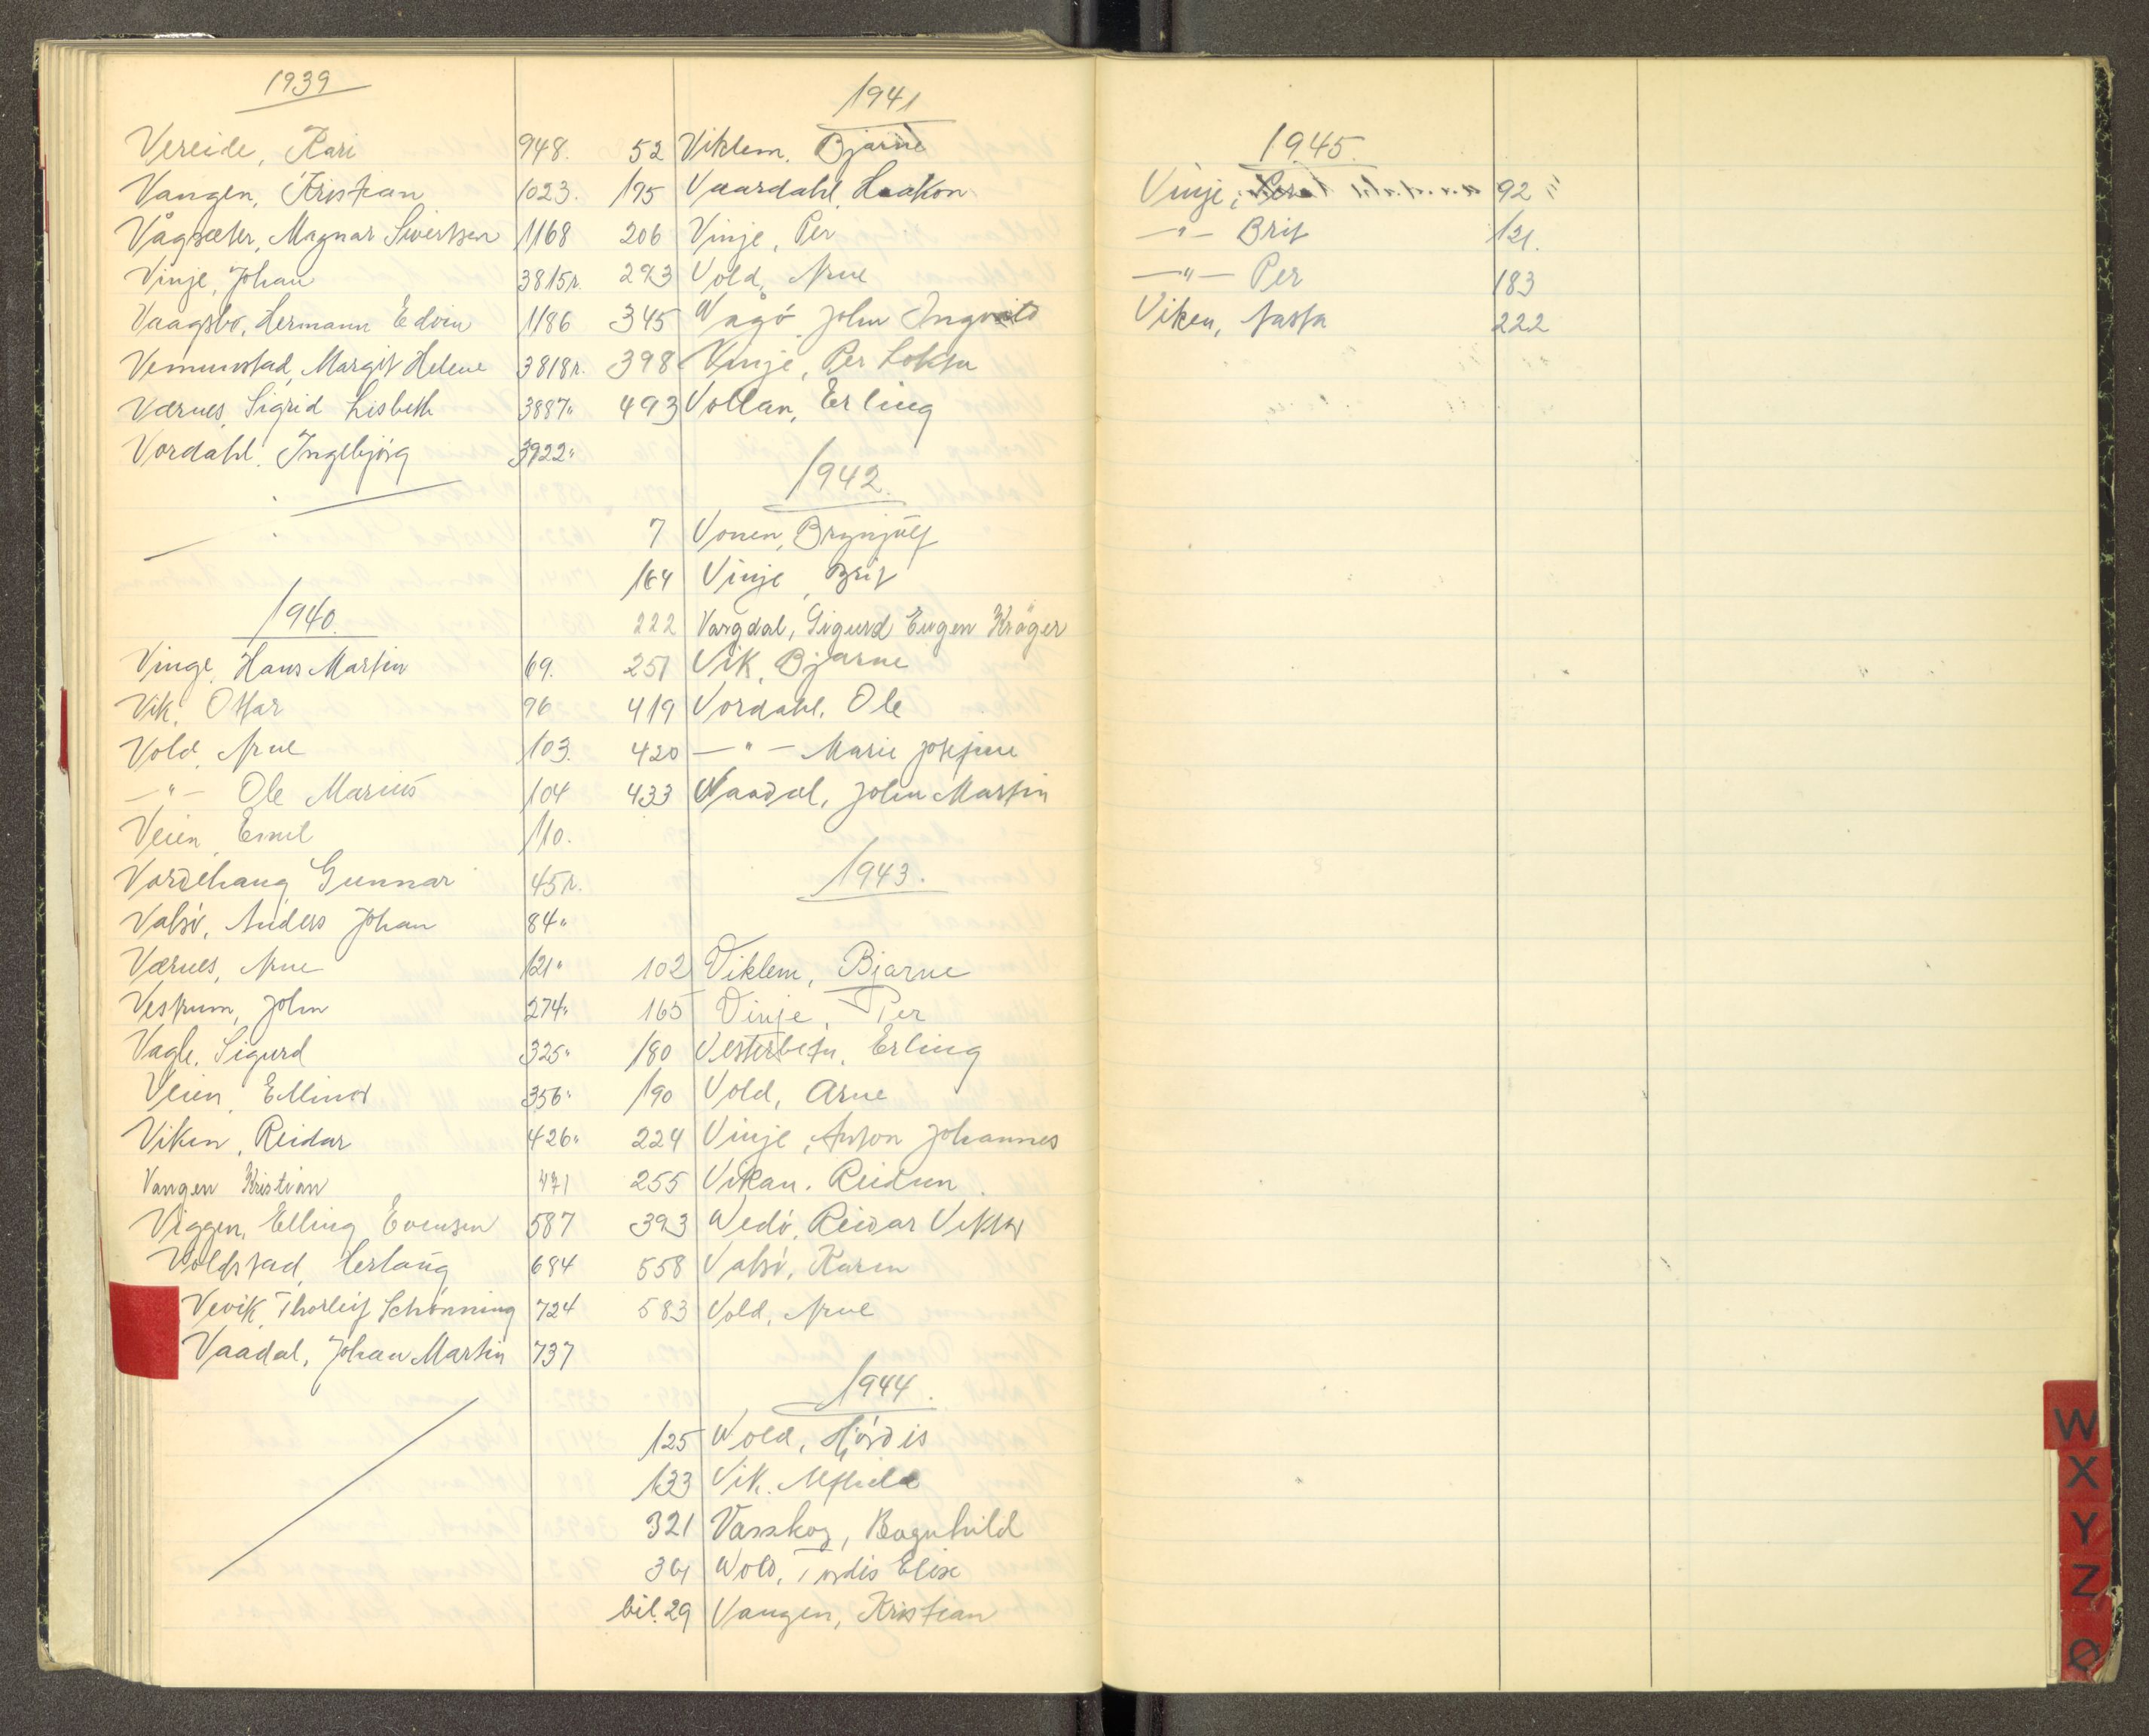 1939
Vereide, Kari 948.
Vangen, Kristian 1023.
Vågsæter, Magnar Sivertsen 1168
Vinje, Johan 3815r.
Vaagsbø, Hermann Edvin 1186
Vemunstad, Margit Helene 3818r.
Værnes, Sigrid Lisbeth 3887"
Vordahl, Ingebjörg 3922"
1940.
Vinge, Hans Martin 69.
Vik, Ottar 96
Vold, Arne 103.
—"— Ole Marius 104
Veien, Emil 110.
Vordehaug Gunnar 45r.
Valsö, Anders Johan 84"
Værnes, Arne 121"
Vestrum, John 274"
Vagle, Sigurd 325"
Veien, Ellinor 356"
Viken, Reidar 426"
Vangen Kristian 471
Viggen, Elling Evensen 587
Voldstad, Herlaug 684
Vevik, Thorleif Schönning 724
Vaadal, Johan Martin 737
1941
52 Viklem, Bjarne
195 Vaardahl, Haakon
206 Vinje, Per
293 Vold, Arne
345 Wagö, John Ingvald
398 Vinje, Per Loktu
493 Vollan, Erling
1942.
7 Vonen, Brynjulf
164 Vinje, Brit
222 Vargdal, Sigurd Eugen Kröger
251 Vik, Bjarne
419 Vordahl, Ole
420 —"— Marie Josefine
433 Waadal, John Martin
1943.
102 Viklem, Bjarne
165 Vinje, Per
180 Vesterbetn, Erling
190 Vold, Arne
224 Vinje, Anton Johannes
255 Vikan, Reidun
393 Wedö, Reidar Viktor
558 Valsö, Karen
583 Vold, Arne
1944.
125 Wold, Hjördis
133 Vik, Alfhild
321 Vasskog, Bagnhild
361 Wold, Tordis Elise
bil. 29 Vangen, Kristian
1945.
Vinje, 92
—"— Brit 121.
—"— Per 183
Viken, Aasta 222
W
X
Y
Z
Ø